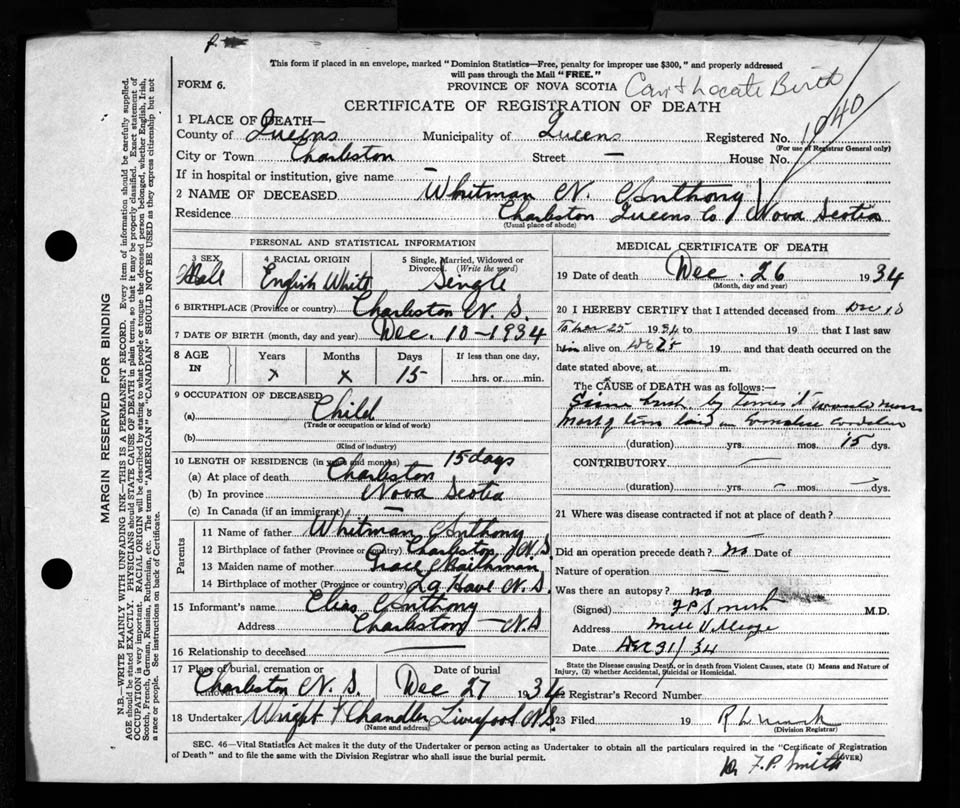 This form if placed in an envelope, marked "Dominion Statistics—Free, penalty for improper use $300," and properly addressed
will pass through the Mail "FREE."
FORM 6.
PROVINCE OF NOVA SCOTIA
Can't Locate Birth
CERTIFICATE OF REGISTRATION OF DEATH
1 PLACE OF DEATH—
County of Queens Municipality of Queens Registered No.
(For use of Registrar General only)
City or Town Charleston Street — House No.
If in hospital or institution, give name —
2 NAME OF DECEASED Whitman N. Anthony
Residence Charleston Queens Co Nova Scotia
(Usual place of abode)
PERSONAL AND STATISTICAL INFORMATION
3 SEX 4 RACIAL ORIGIN 5 Single, Married, Widowed or Divorced. (Write the word)
Male English White Single
6 BIRTHPLACE (Province or country) Charleston N. S.
7 DATE OF BIRTH (month, day and year) Dec. 10-1934
8 AGE IN Years Months Days If less than one day,
x x 15 hrs. or min.
9 OCCUPATION OF DECEASED
(a) Child
(Trade or occupation or kind of work)
(b)
(Kind of industry)
10 LENGTH OF RESIDENCE (in years and months) 15 days
(a) At place of death Charleston
(b) In province Nova Scotia
(c) In Canada (if an immigrant) —
Parents
11 Name of father Whitman Anthony
12 Birthplace of father (Province or country) Charleston, N.S.
13 Maiden name of mother Grace
14 Birthplace of mother (Province or country) La Have N. S.
15 Informant's name Elias Anthony
Address Charleston — N.S
16 Relationship to deceased —
17 Place of burial, cremation or Date of burial
Charleston N. S. Dec 27 1934
18 Undertaker Wright & Chandler Liverpool N.S.
(Name and address)
MEDICAL CERTIFICATE OF DEATH
19 Date of death Dec. 26 1934
(Month, day and year)
20 I HEREBY CERTIFY that I attended deceased from Dec 10
25 1934 to 19 that I last saw
him alive on Dec 25 19 and that death occurred on the
date stated above, at m.
The CAUSE of DEATH was as follows:—
(duration) yrs. mos. 15 dys.
CONTRIBUTORY —
(duration) yrs. — mos. — dys.
21 Where was disease contracted if not at place of death?
—
Did an operation precede death? No Date of
Nature of operation —
Was there an autopsy? no
(Signed) F P Smith M.D.
Address Mill Village
Date Dec 31/34
State the Disease causing Death, or in death from Violent Causes, state (1) Means and Nature of
Injury, (2) whether Accidental, Suicidal or Homicidal.
22 Registrar's Record Number
23 Filed 19
(Division Registrar)
SEC. 46—Vital Statistics Act makes it the duty of the Undertaker or person acting as Undertaker to obtain all the particulars required in the "Certificate of Registration
of Death" and to file the same with the Division Registrar who shall issue the burial permit.
(OVER)
Dr F.P. Smith
MARGIN RESERVED FOR BINDING
N.B.—WRITE PLAINLY WITH UNFADING INK—THIS IS A PERMANENT RECORD. Every item of information should be carefully supplied.
AGE should be stated EXACTLY. PHYSICIANS should STATE CAUSE OF DEATH in plain terms, so that it may be properly classified. Exact statement of
OCCUPATION is very important. RACIAL ORIGIN will be described by stating to what people or tongue the deceased person belonged, whether English, Irish,
Scotch, French, German, Russian, Ruthenian, etc. The terms "AMERICAN" or "CANADIAN" SHOULD NOT BE USED as they express citizenship but not
a race or people. See instructions on back of Certificate.